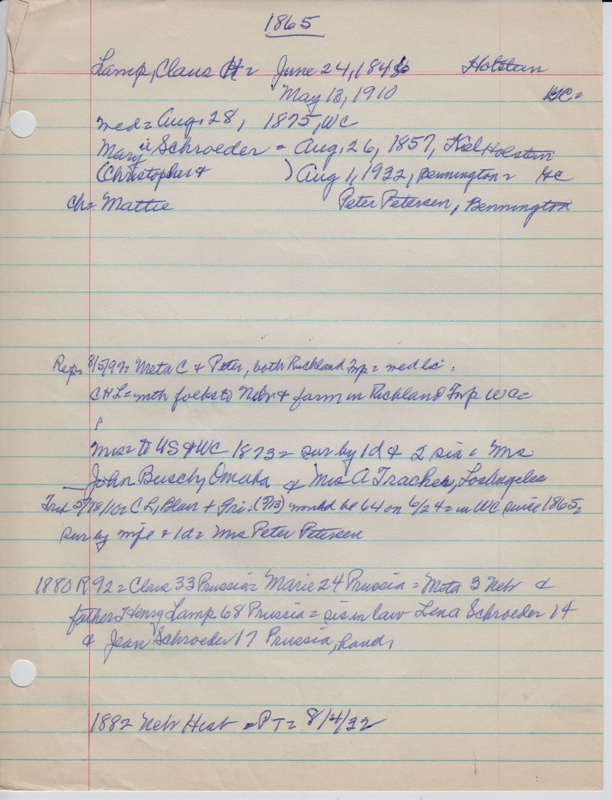 1865
Lamp, Claus H = June 24, 1846 Holstein
May 13, 1910 HC=
med = Aug. 28, 1875, WC
Mary Schroeder = Aug. 26, 1857, Kiel Holstein
(Christopher & ) Aug 1, 1932, Bennington = HC
ch = Mattie Peter Petersen, Bennington
Rep = 8/5/92 = Meta C & Peter, both Richland Twp = med lic =
CHL = mth folks to Nebr & farm in Richland Twp WC =
Mrs = to US & WC 1873 = sur by 1d & 2 sis = Mrs
John Busch, Omaha & Mrs A Tracher, Los Angeles
Trib 5/18/10 = CL, Blair + Fri. (5/13) would be 64 on 6/24 = in WC since 1865 =
sur by wife & 1d = Mrs Peter Petersen
1880 R 92 = Claus 33 Prussia = Marie 24 Prussia = Meta 3 Nebr &
father Henry Lamp 68 Prussia = sis in law Lena Schroeder 14
& Jean Schroeder 17 Prussia, hand,
1882 Nebr Hist = PT = 8/4/32